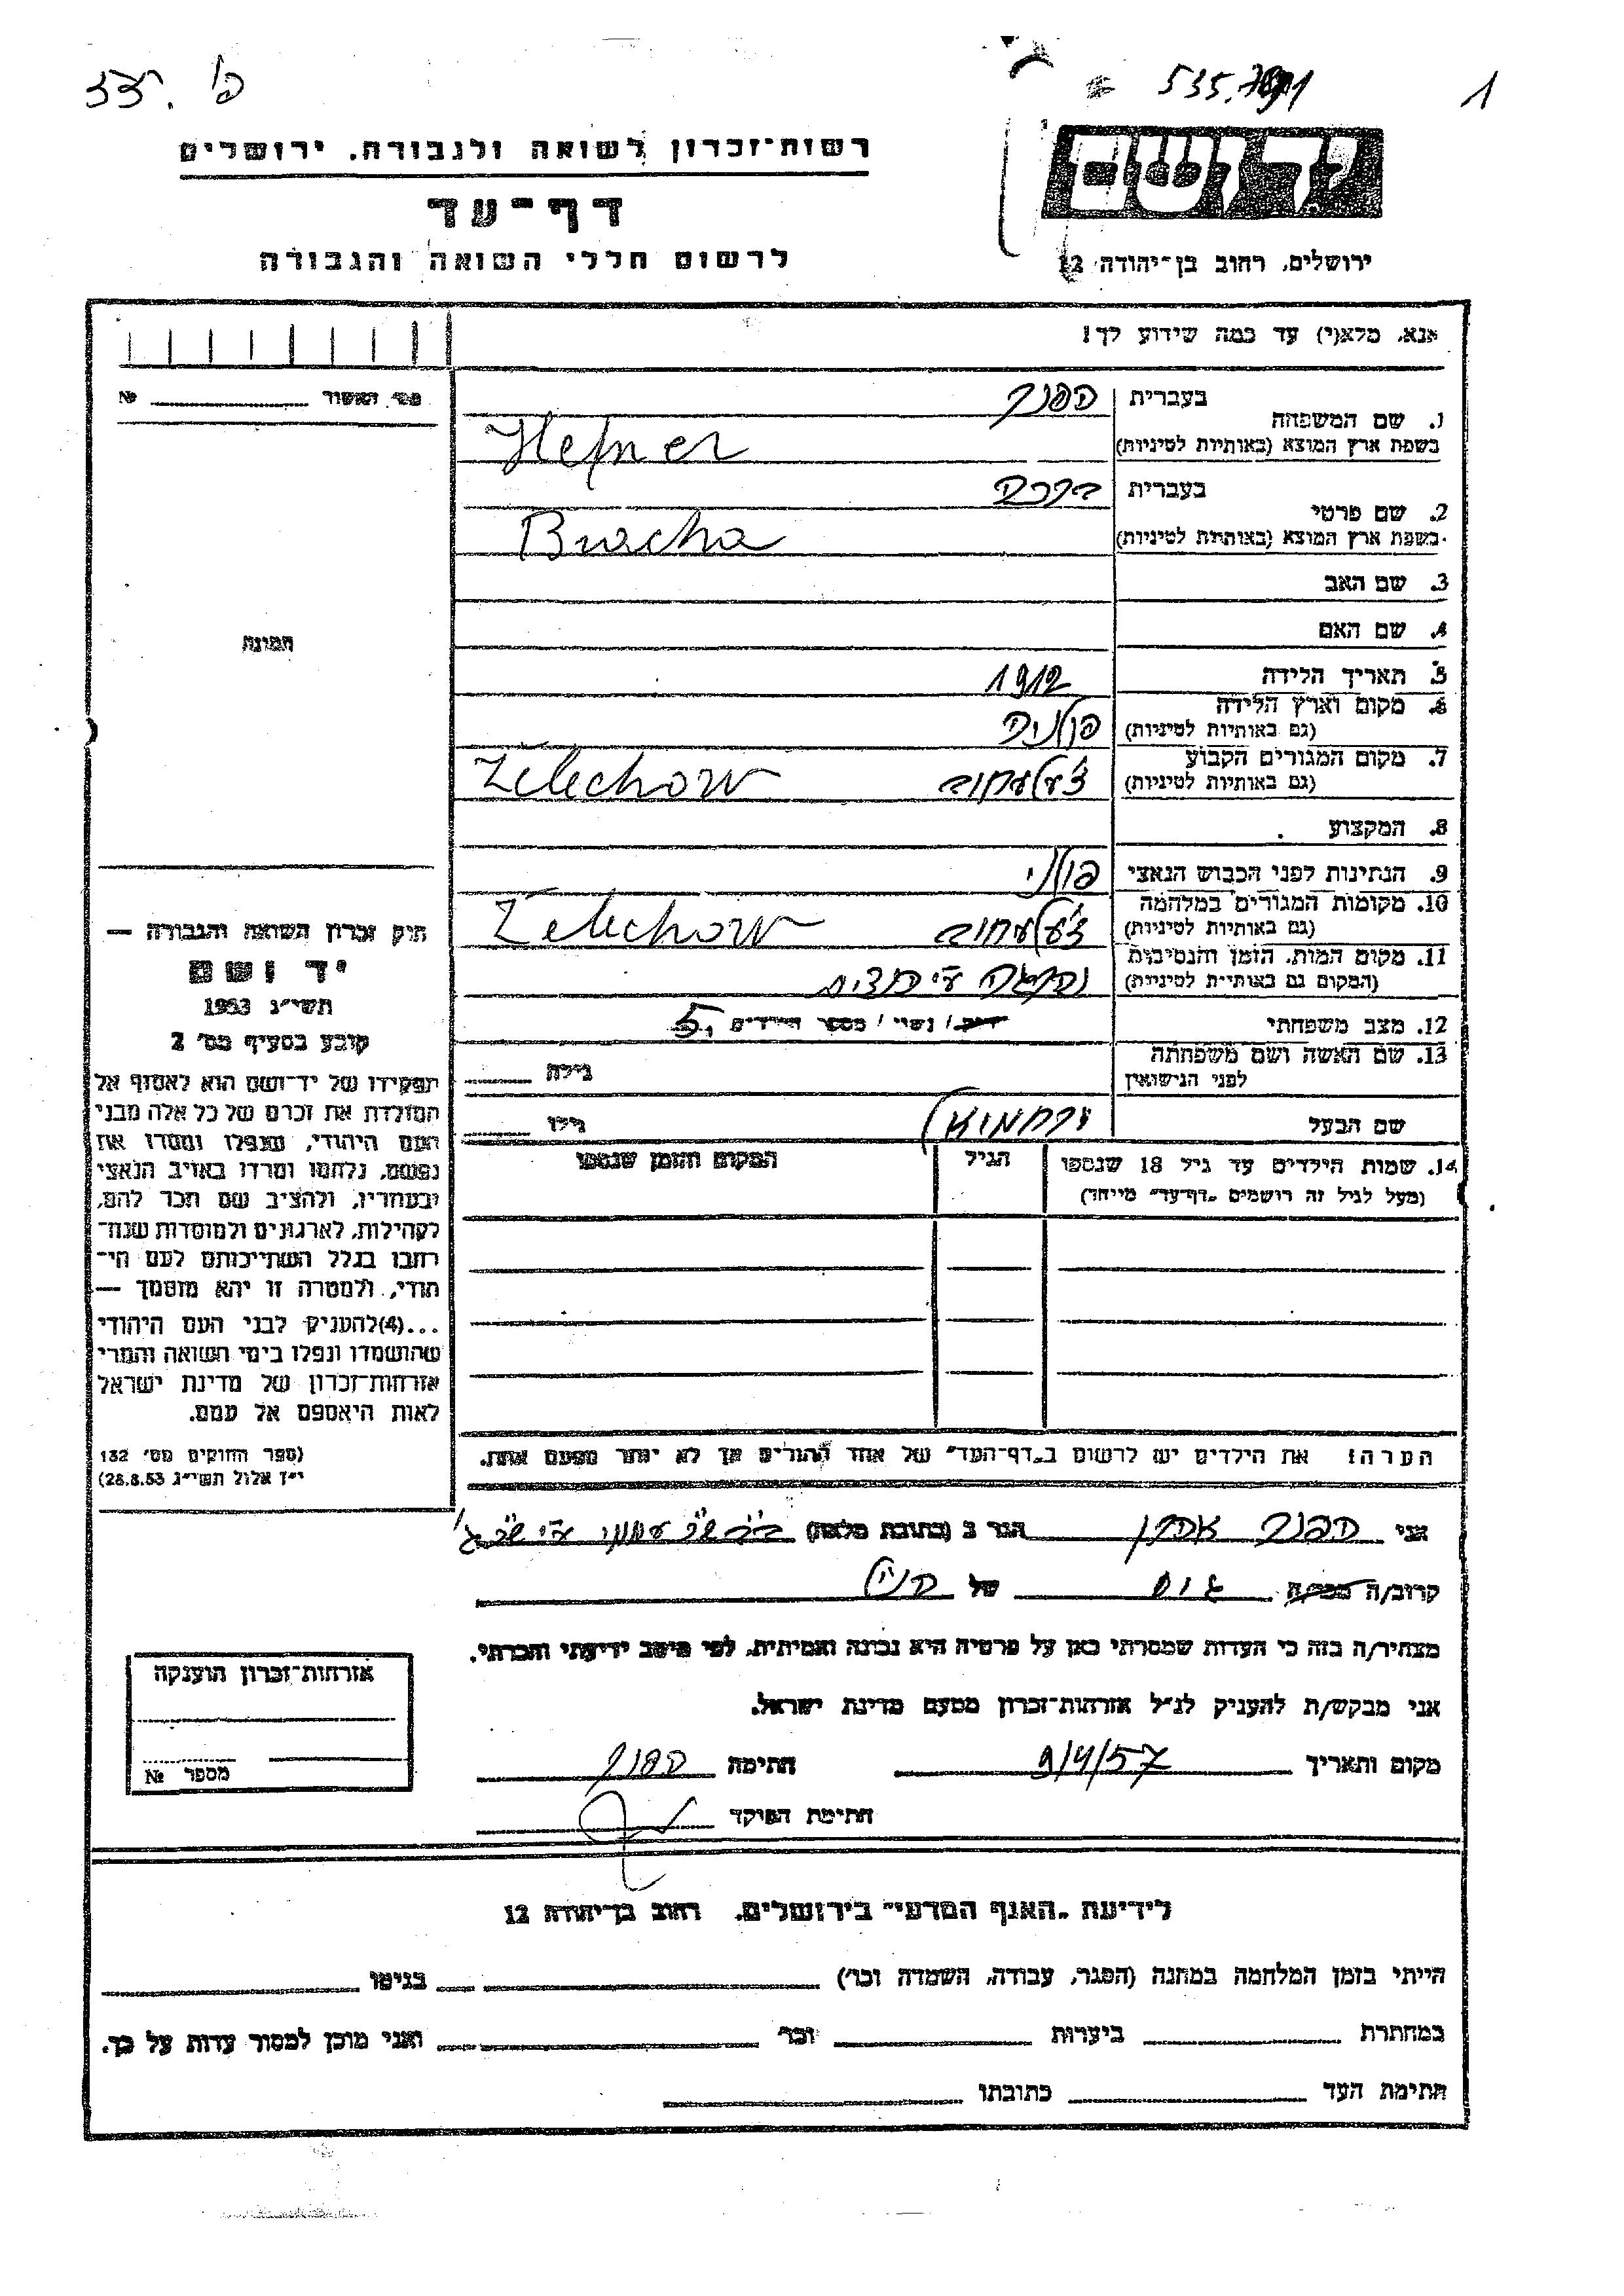 535.791
1
יד ושם
ירושלים, רחוב בן־יהודה 12
רשות־זכרון לשואה ולגבורה, ירושלים
דף־עד
לרשום חללי השואה והגבורה
אנא, מלא(י) עד כמה שידוע לך!
מס' האשור №
1. שם המשפחה
בעברית הפנר
בשפת ארץ המוצא (באותיות לטיניות) Hefner
2. שם פרטי
בעברית ברכה
בשפת ארץ המוצא (באותיות לטיניות) Bracha
3. שם האב
4. שם האם
5. תאריך הלידה 1912
6. מקום וארץ הלידה
(גם באותיות לטיניות) פולניה
7. מקום המגורים הקבוע
(גם באותיות לטיניות) ז'עלעחוב Żelechow
8. המקצוע
9. הנתינות לפני הכבוש הנאצי פולני
10. מקומות המגורים במלחמה
(גם באותיות לטיניות) ז'עלעחוב Żelechow
11. מקום המות, הזמן והנסיבות
(המקום גם באותיות לטיניות) ע"י הנצים
12. מצב משפחתי רווק/ נשוי/ מספר הילדים 5
13. שם האשה ושם משפחתה
לפני הנישואין גילה
שם הבעל ירחמיאל גילו
14. שמות הילדים עד גיל 18 שנספו
(מעל לגיל זה רושמים "דף־עד" מיוחד)
הגיל
המקום והזמן שנספו
הערה: את הילדים יש לרשום ב"דף־העד" של אחד ההורים אך לא יותר מפעם אחת.
תמונה
חוק זכרון השואה והגבורה —
יד ושם
תשי"ג 1953
קובע בסעיף מס' 2
תפקידו של יד־ושם הוא לאסוף אל
המולדת את זכרם של כל אלה מבני
העם היהודי, שנפלו ומסרו את
נפשם, נלחמו ומרדו באויב הנאצי
ובעוזריו, ולהציב שם וזכר להם,
לקהילות, לארגונים ולמוסדות שנח־
רבו בגלל השתייכותם לעם היה־
ודי, ולמטרה זו יהא מוסמך —
...(4)להעניק לבני העם היהודי
שהושמדו ונפלו בימי השואה והמרי
אזרחות־זכרון של מדינת ישראל
לאות היאספם אל עמם.
(ספר החוקים מס' 132
י"ז אלול תשי"ג 28.8.53)
אני הפנר אהרן הגר ב (כתובת מלאה)
קרוב/ה מכר/ה גיס של הנ"ל
מצהיר/ה בזה כי העדות שמסרתי כאן על פרטיה היא נכונה ואמיתית, לפי מיטב ידיעתי והכרתי.
אני מבקש/ת להעניק לנ"ל אזרחות־זכרון מטעם מדינת ישראל.
מקום ותאריך 9/4/57 חתימה הפנר
חתימת הפוקד
אזרחות־זכרון הוענקה
מספר №
לידיעת "האגף המדעי" בירושלים, רחוב בן־יהודה 12
הייתי בזמן המלחמה במחנה (הסגר, עבודה, השמדה וכו') בגיטו
במחתרת ביערות וכו' ואני מוכן למסור עדות על כך.
חתימת העד כתובתו